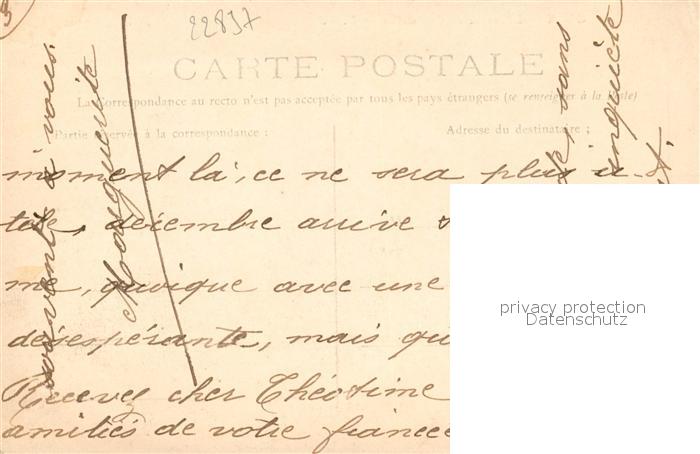 22837
CARTE POSTALE
La Correspondance au recto n'est pas acceptée par tous les pays étrangers (se renseigner à la Poste)
Partie réservée à la correspondance :
Adresse du destinataire ;
moment là, ce ne sera plus
décembre arrive
me, quoique avec une
désespérante, mais qu
Recevez cher Théotime
amitiés de votre fiancée
souvent à vous.
Marguerite
de, dans
inquiète
privacy protection
Datenschutz